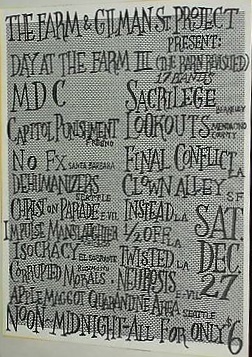 THE FARM & GILMAN ST PROJECT
PRESENT:
DAY AT THE FARM III (THE BARN REVISITED)
17 BANDS
MDC SACRILEGE BERKELEY
CAPITOL PUNISHMENT FRESNO LOOKOUTS MENDOCINO COUNTY
NO FX SANTA BARBARA FINAL CONFLICT LA
DEHUMANIZERS SEATTLE CLOWN ALLEY SF
CHRIST ON PARADE E-VIL INSTEAD LA SAT
IMPULSE MANSLAUGHTER 1/2 OFF LA DEC
ISOCRACY EL SOBRANTE TWISTED LA 27
CORRUPTED MORALS NEUROSIS E-VIL
APPLE MAGGOT QUARANTINE AREA SEATTLE
NOON-MIDNIGHT-ALL FOR ONLY $6